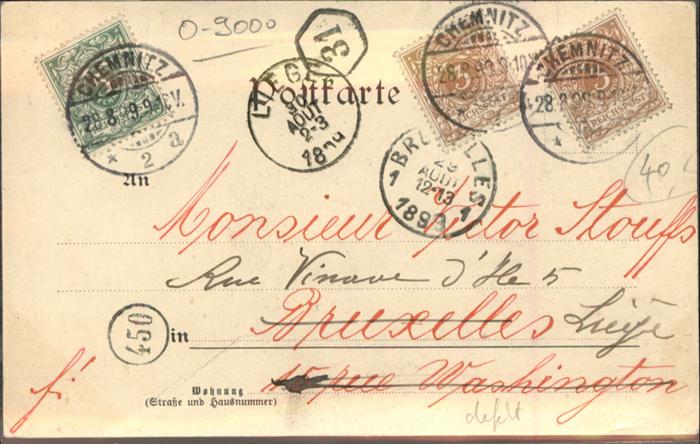 O-9000
CHEMNITZ
28.8.99.9-10V.
* 2 a
LIÈGE
30
AOUT
2-3
1899
31
CHEMNITZ
28.8.99.9-10V.
REICHSPOST
CHEMNITZ
28.8.99.
REICHSPOST
Postkarte
BRUXELLES
29
AOUT
12-13
1899
1 1
40,
An
Monsieur Victor Stouffs
Rue Vinave d'Ile 5
450
in
Bruxelles Liége
f:
15 rue Washington
Wohnung
(Straße und Hausnummer)
defekt